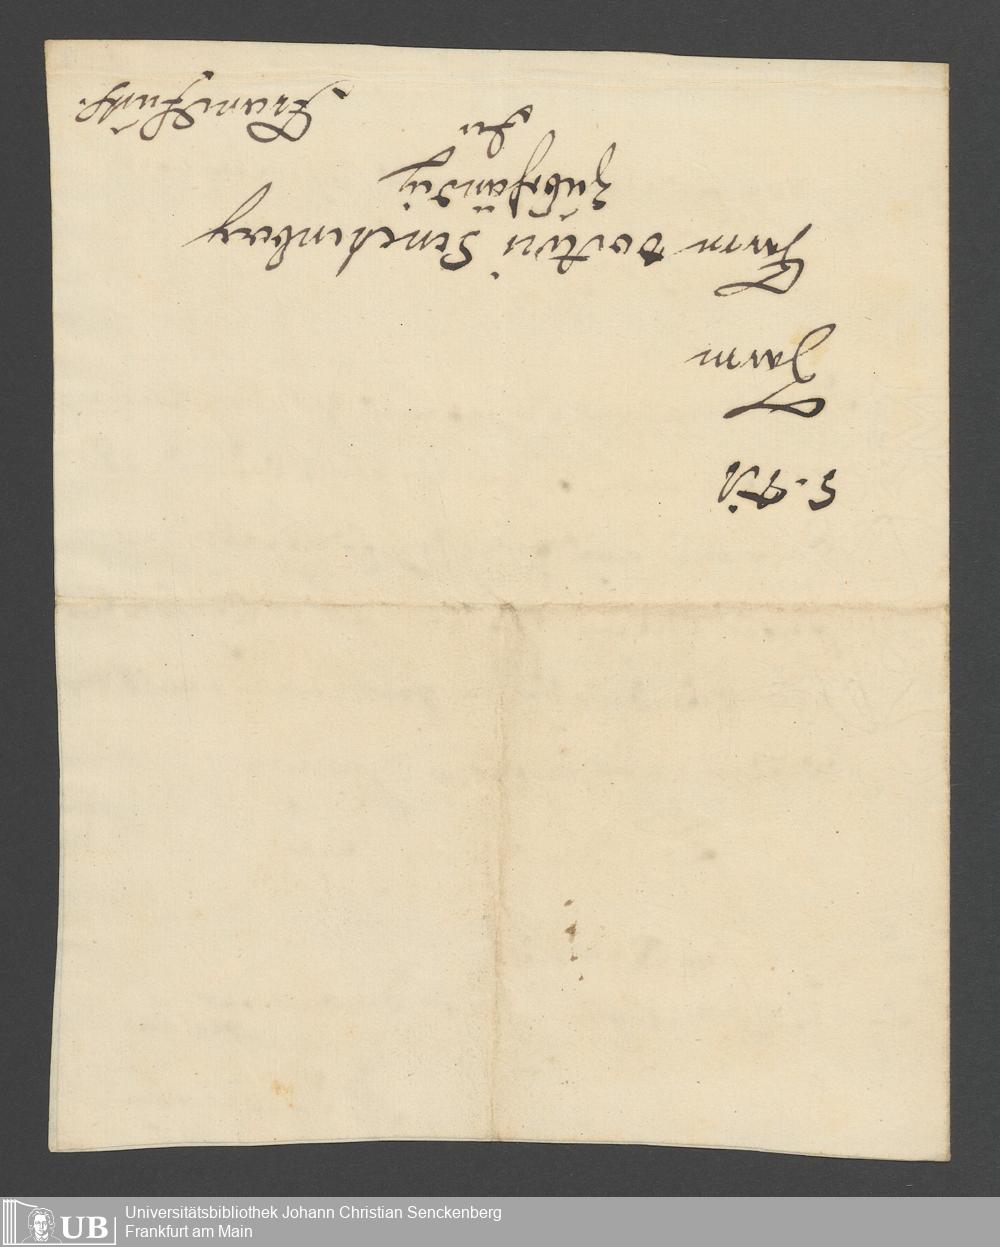 Herrn
Herrn doctor Senckenberg
zu behändig
in
Franckfurth
UB
Universitätsbibliothek Johann Christian Senckenberg
Frankfurt am Main